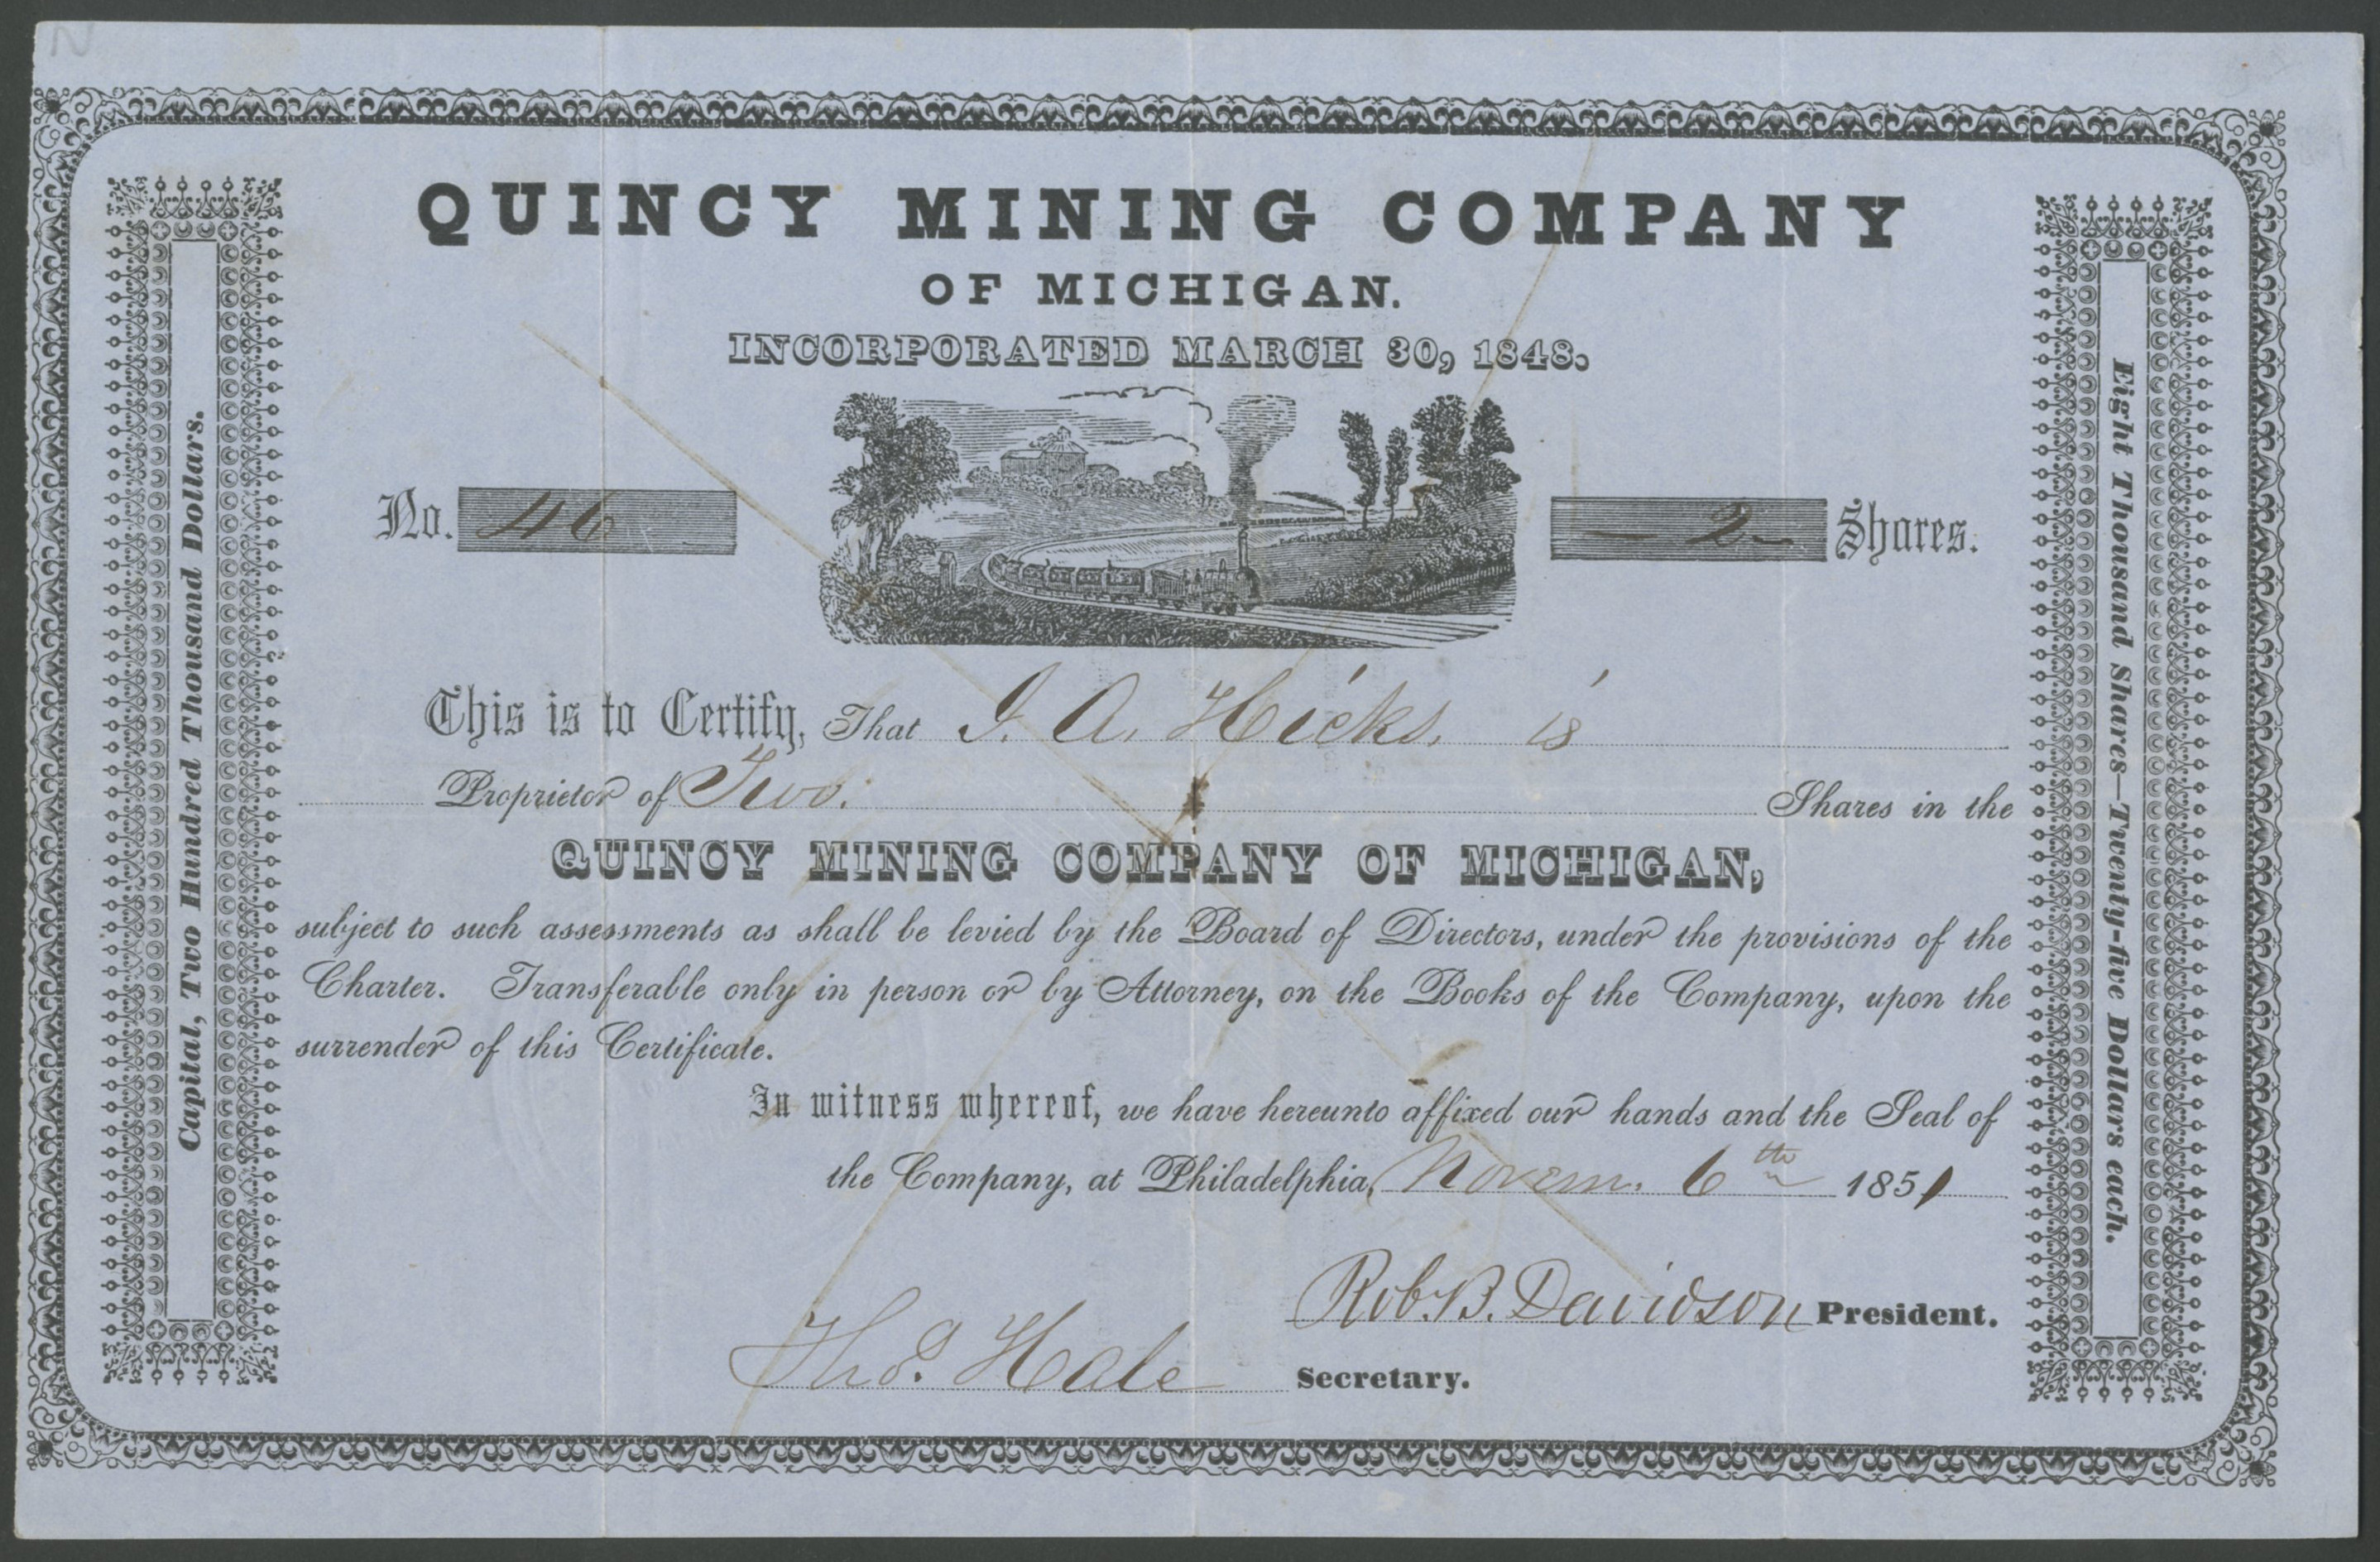 N
QUINCY MINING COMPANY
OF MICHIGAN.
INCORPORATED MARCH 30, 1848.
No. 46
- 2 - Shares.
Capital, Two Hundred Thousand Dollars.
Eight Thousand Shares—Twenty-five Dollars each.
This is to Certify, That I. A. Hicks, is
Proprietor of Two. Shares in the
QUINCY MINING COMPANY OF MICHIGAN,
subject to such assessments as shall be levied by the Board of Directors, under the provisions of the
Charter. Transferable only in person or by Attorney, on the Books of the Company, upon the
surrender of this Certificate.
In witness whereof, we have hereunto affixed our hands and the Seal of
the Company, at Philadelphia, Novem. 6th 1851
Rob. B. Davidson President.
Thos. Hale Secretary.